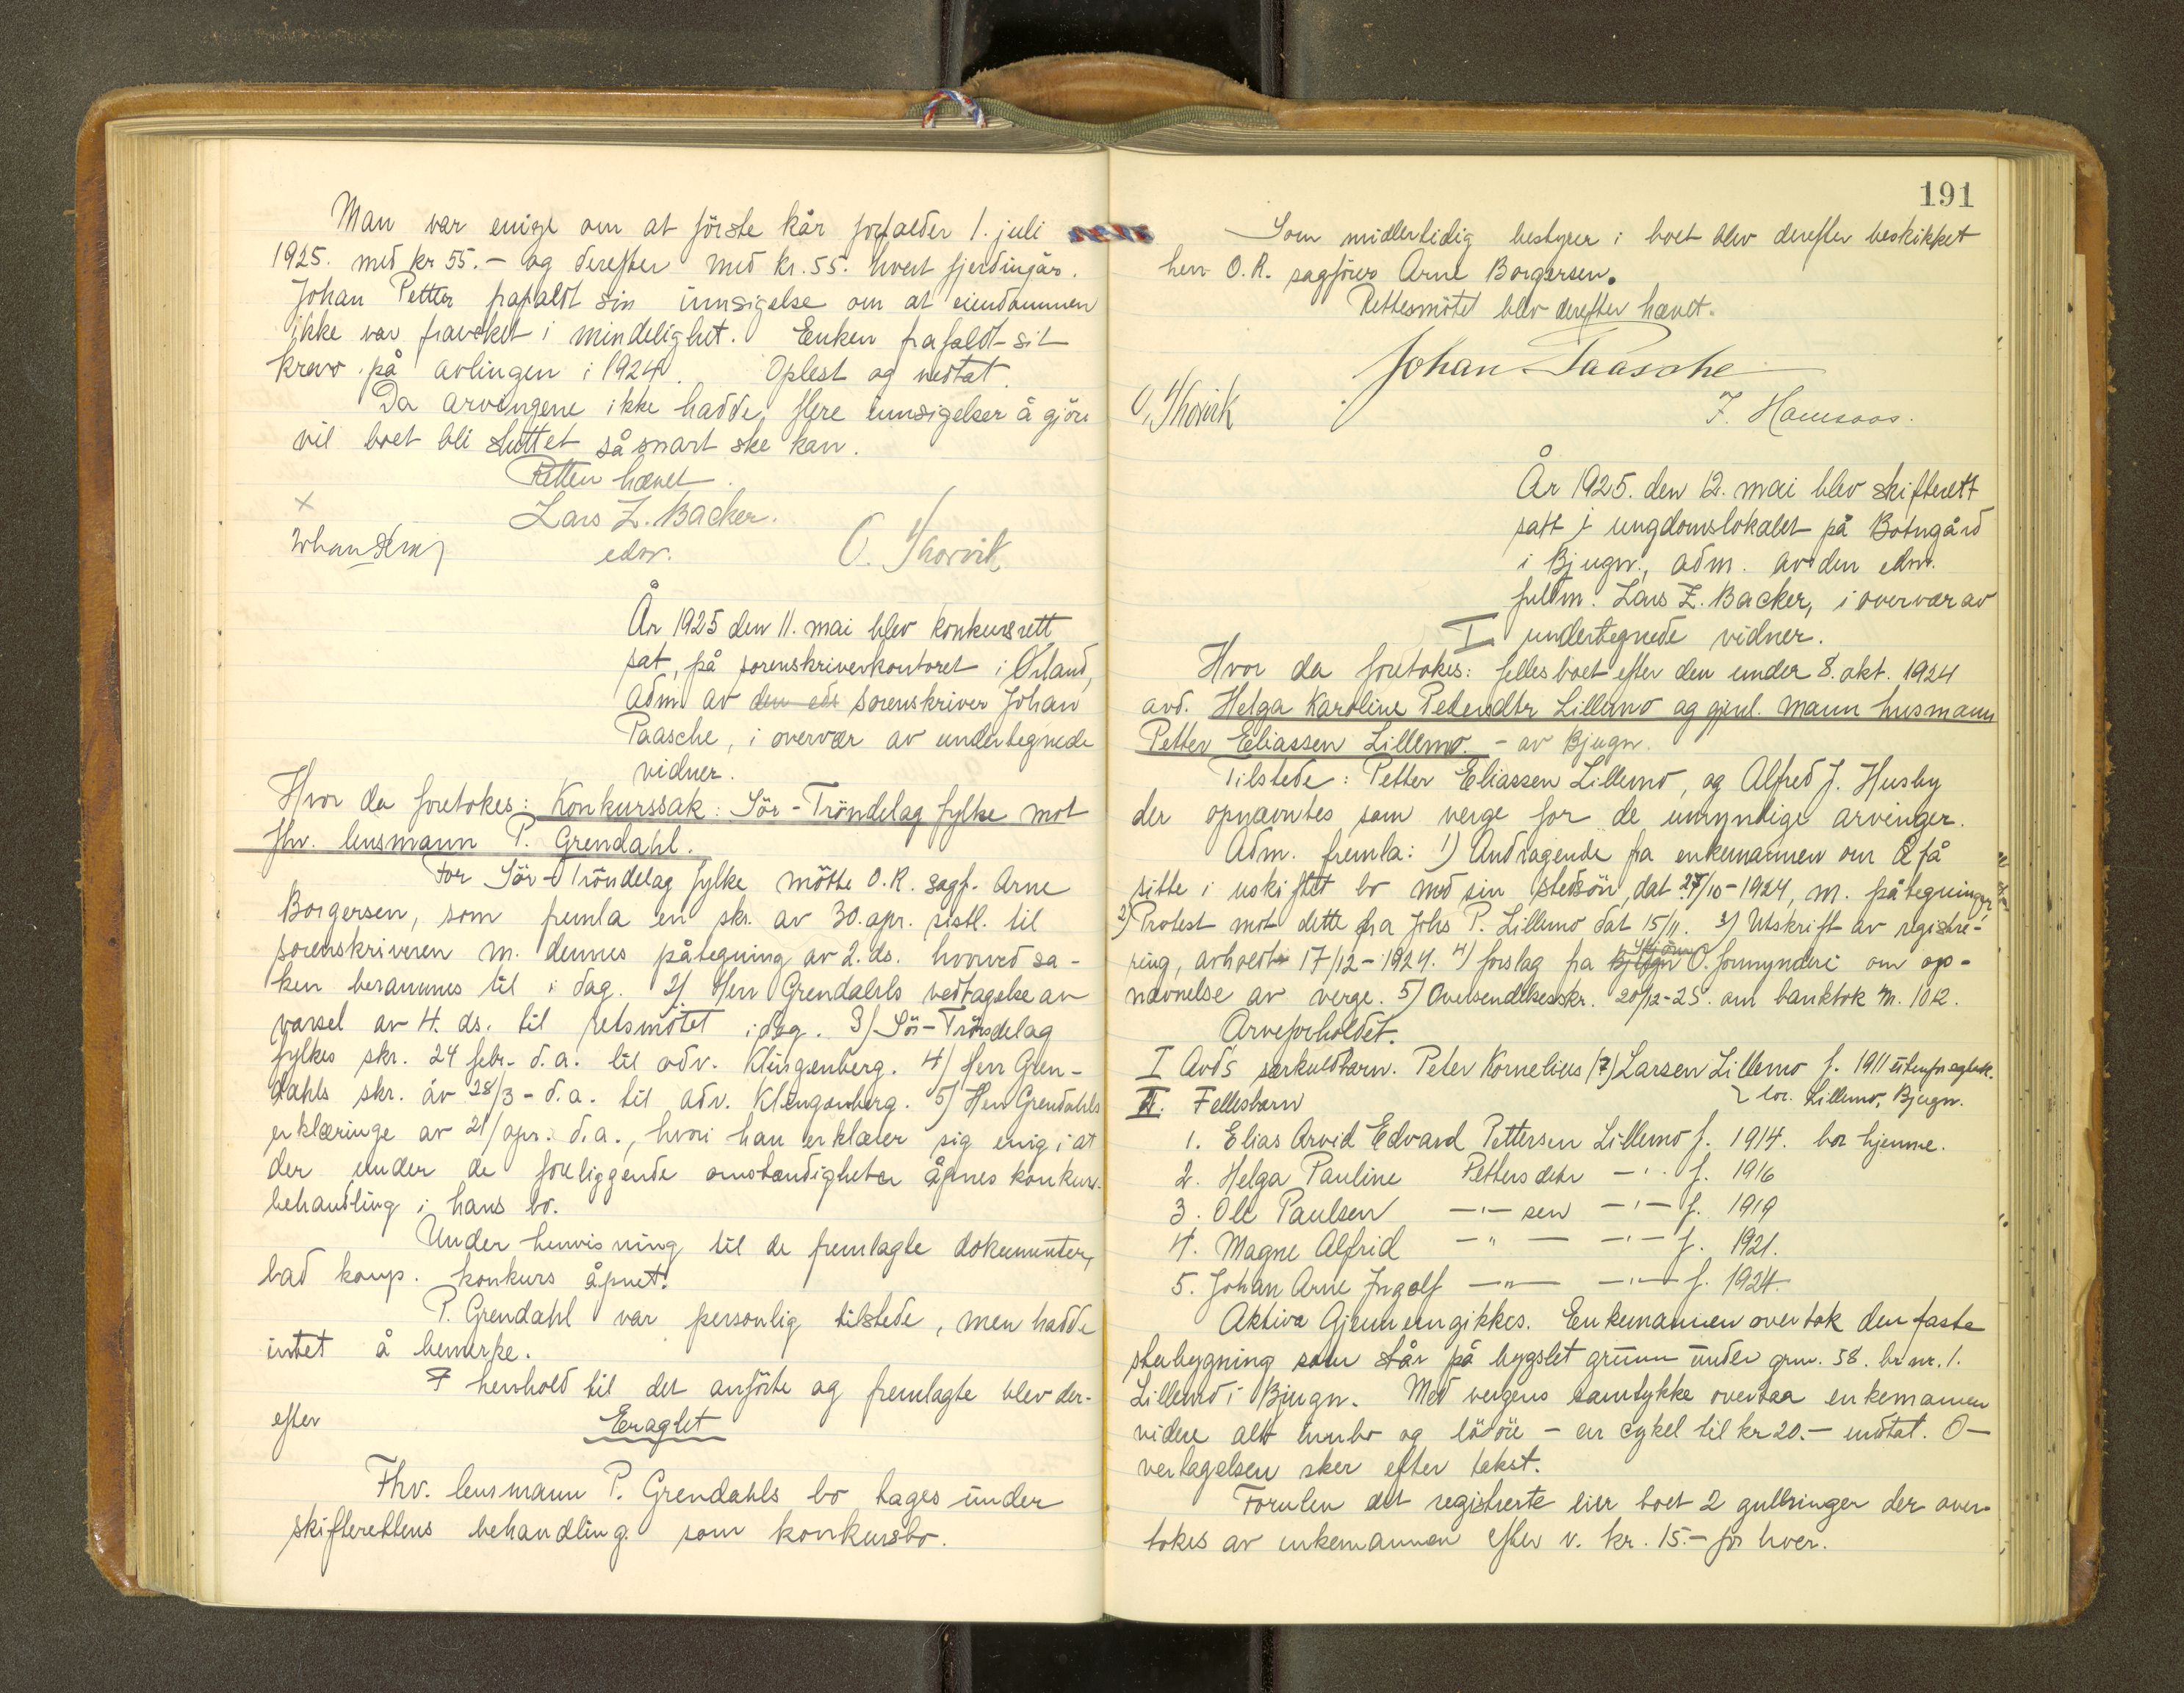 Man var enige om at förste kår forfalder 1. juli
1925. med kr 55.- og derefter med kr. 55. hvert fjerdingår.
Johan Petter frafaldt sin innsigelse om at eiendommen
ikke var fraveket i mindelighet. Enken frafaldt sit
krav på avlingen i 1924. Oplest og vedtat.
Da arvingene ikke hadde flere innsigelser å gjöre
vil boet bli sluttet så snart ske kan.
Retten hævet.
x Lars Z. Backer.
edsv. O. Thorvik
År 1925 den 11. mai blev konkursrett
sat, på sorenskriverkontoret i Örland,
adm. av den eds sorenskriver Johan
Paasche, i overvær av undertegnede
vidner.
Hvor da foretokes: Konkurssak: Sör-Tröndelag fylke mot
fhv. lensmann P. Grendahl.
For Sör-Tröndelag fylke mötte O.R. sagf. Arne
Borgersen, som fremla en skr. av 30. apr. sistl. til
sorenskriveren m. dennes påtegning av 2. ds. hvorved sa-
ken berammes til i dag. 2) Herr Grendahls vedtagelse av
varsel av 4. ds. til retsmötet i dag. 3) Sör-Tröndelag
fylkes skr. 24 febr. d.a. til adv. Klingenberg. 4) Herr Gren-
dahls skr. av 28/3 - d.a. til adv. Klingenberg. 5) Herr Grendahls
erklæringe av 21/apr. d.a., hvori han erklærer sig enig i at
der under de foreliggende omstændigheter åpnes konkurs-
behandling i hans bo.
Under henvisning til de fremlagte dokumenter,
bad komp. konkurs åpnet.
P. Grendahl var personlig tilstede, men hadde
intet å bemerke.
I henhold til det anförte og fremlagte blev der-
efter Eragtet
Fhv. lensmann P. Grendahls bo tages under
skifterettens behandling som konkursbo.
191
Som midlertidig bestyrer i boet blev derefter beskikket
herr O.R. sagförer Arne Borgersen.
Rettesmötet blev derefter hævet.
Johan Paasche
O. Thorvik
År 1925. den 12. mai blev skifterett
satt i ungdomslokalet på Botngård
i Bjugn, adm. av den edsv.
fullm. Lars Z. Backer, i overvær av
I undertegnede vidner.
Hvor da foretokes: fellesboet efter den under 8. okt. 1924
avd. Helga Karoline Petersdtr Lillemo og gjenl. mann husmann
Petter Eliassen Lillemo. - av Bjugn.
Tilstede: Petter Eliassen Lillemo, og Alfred J. Husby
der opnævntes som verge for de umyndige arvinger.
Adm. fremla: 1) Andragende fra enkemannen om å få
sitte i uskiftet bo med sin stedsön, dat. 27/10-1924, m. påtegninger
2) Protest mot dette fra Johs P. Lillemo dat 15/11. 3) Utskrift av registre-
ring, avholdt 17/12-1924. 4) forslag fra Bjugn O. formynderi om op-
nævnelse av verge. 5) Oversendelsesskr. 20/12-25. om banktok nr. 1012.
Arveforholdet.
I Avd's særkuldbarn. Peter Kornelius (?) Larsen Lillemo f. 1911 utenfor egtesk.
bor. Lillemo, Bjugn.
II. Fellesbarn
1. Elias Arvid Edvard Pettersen Lillemo f. 1914. bor hjemme.
2. Helga Pauline Pettersdtr -"- f. 1916
3. Ole Paulsen -"- sen -"- f. 1919
4. Magne Alfrid -"- -"- f. 1921.
5. Johan Arne Ingolf -"- -"- f. 1924.
Aktiva Gjennemgikkes. Enkemannen overtok den faste
stubygning som står på bygslet grunn under grnr. 58. br nr. 1.
Lillemo i Bjugn. Med vergens samtykke overtaa enkemannen
videre alt innbo og lösöre - en cykel til kr 20.- undtat. O-
vertagelsen sker efter takst.
Foruten det registrerte eier boet 2 gullringer der over-
tokes av enkemannen efter v. kr. 15.- for hver.